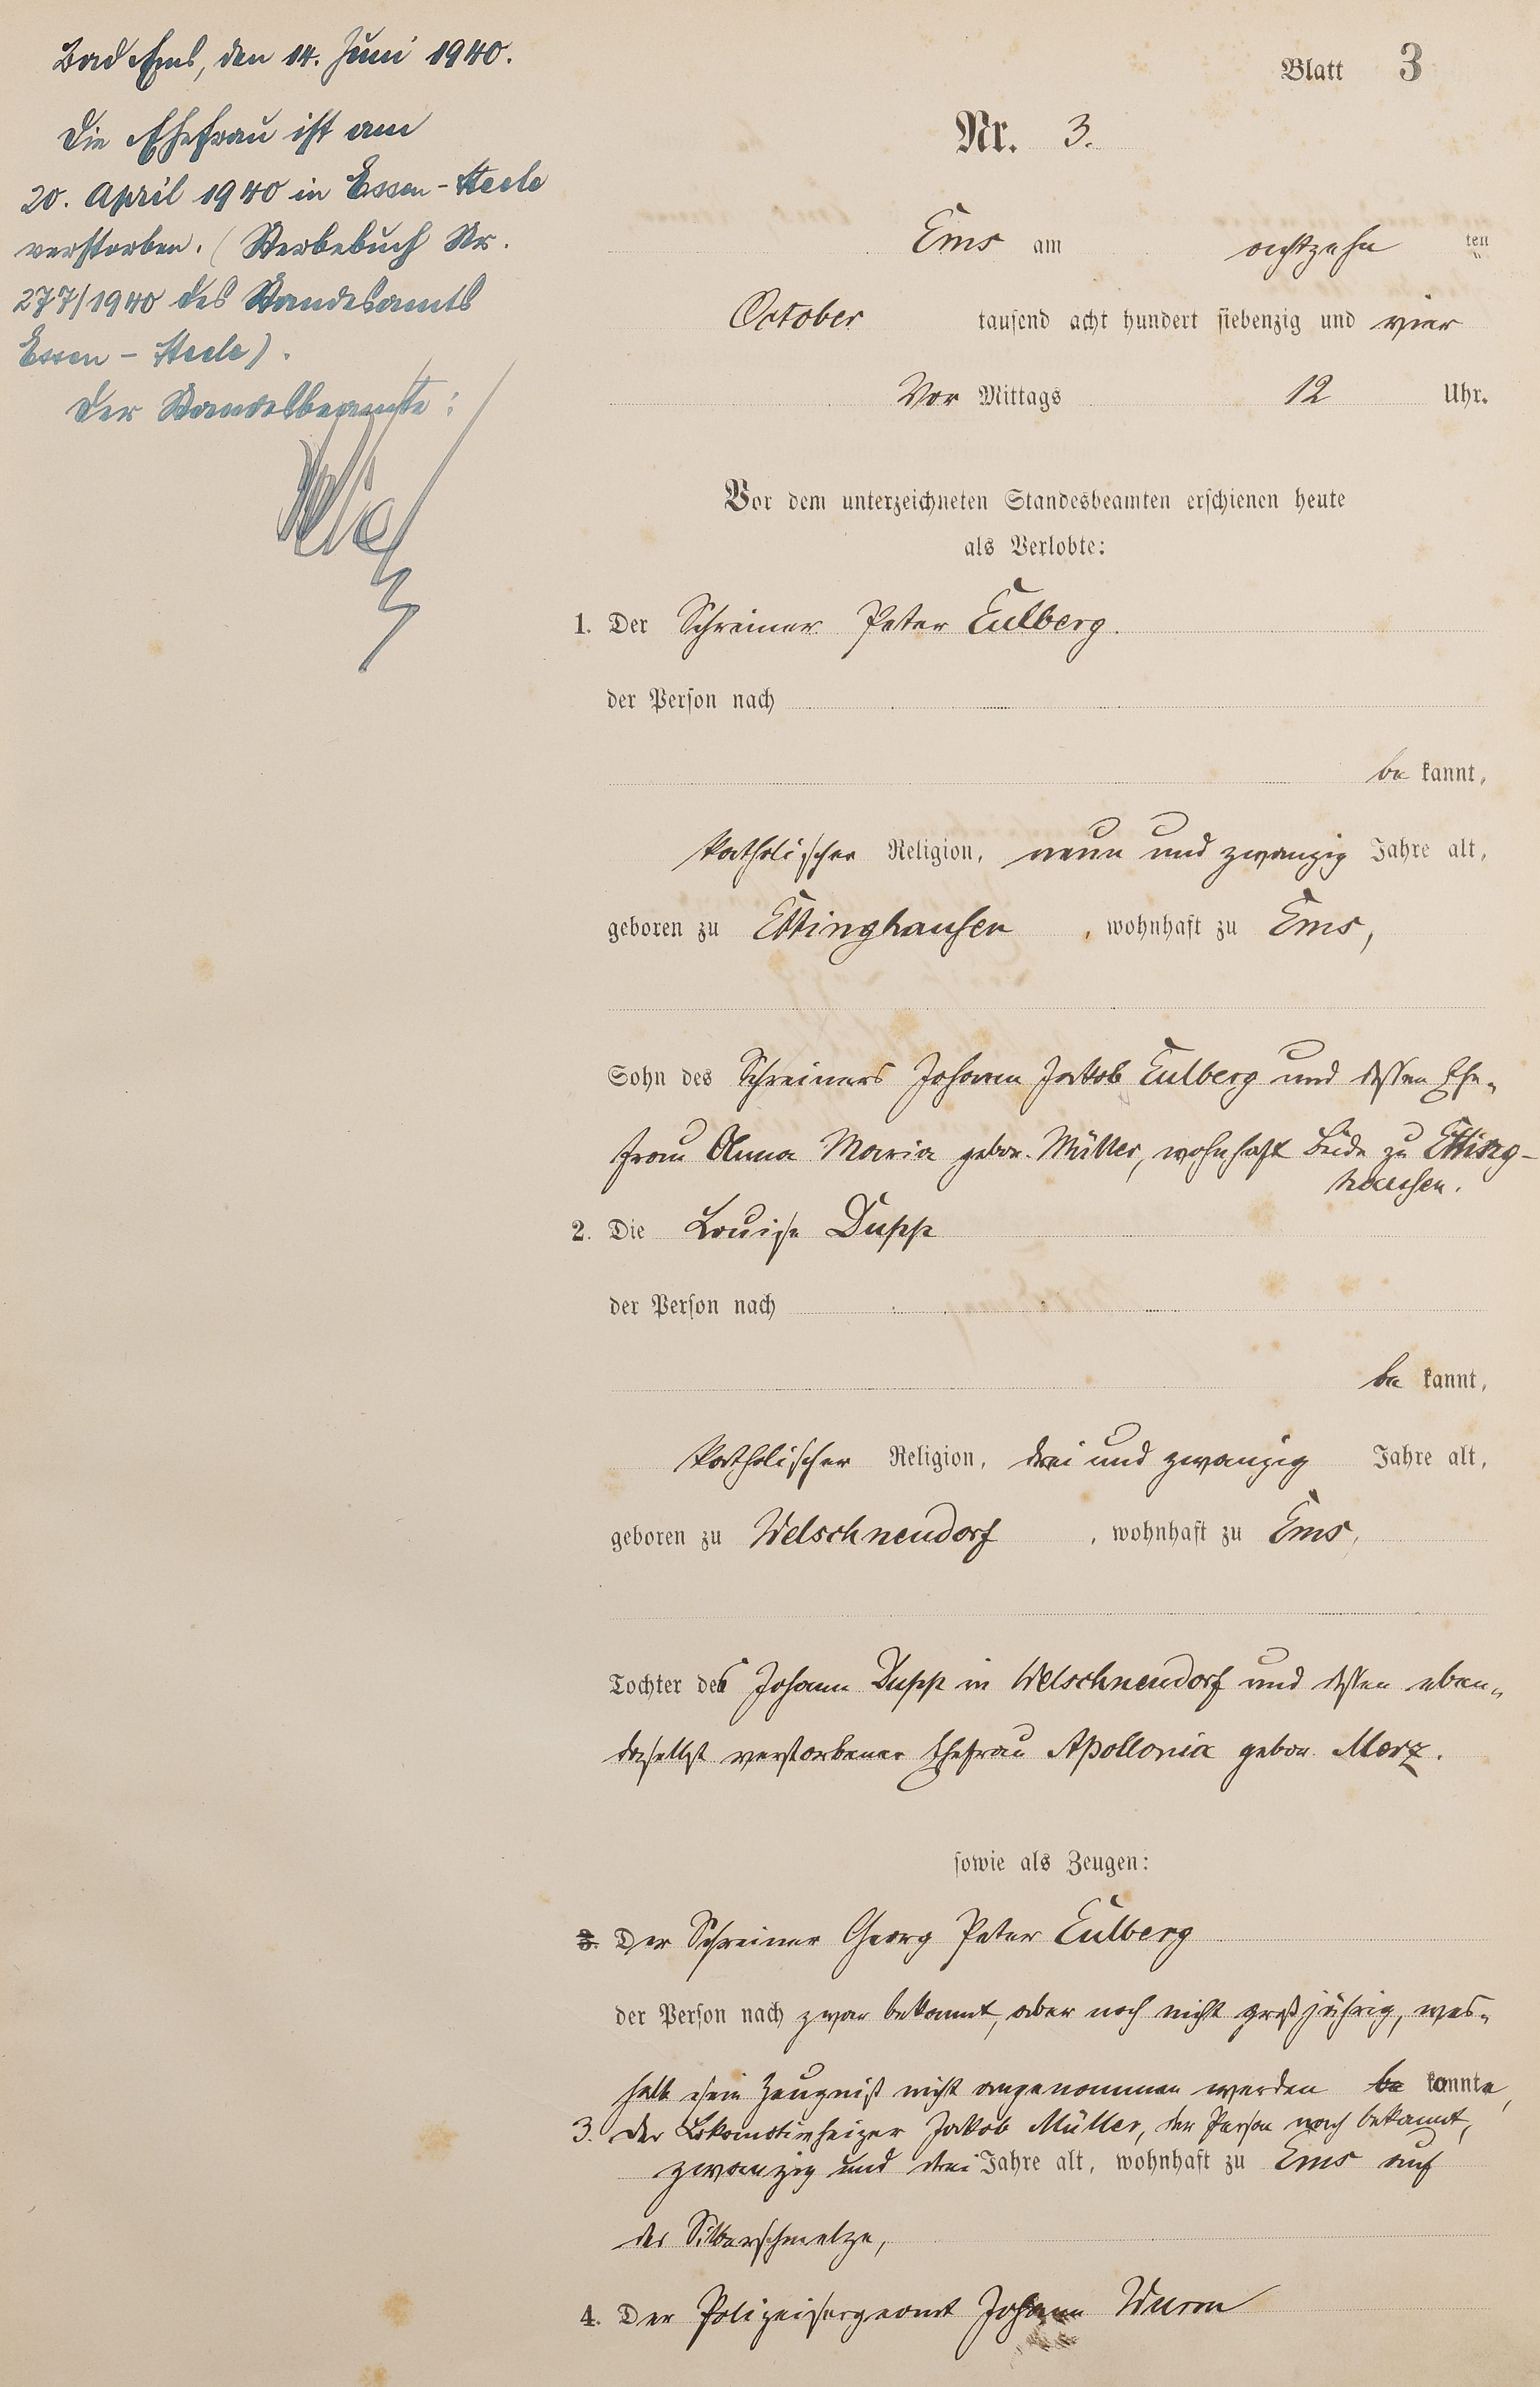 Bad Ems, den 14. Juni 1940.
Die Ehefrau ist am
20. April 1940 in Essen-Steele
verstorben. (Sterbebuch Nr.
277/1940 des Standesamts
Essen-Steele).
Der Standesbeamte:
Blatt 3
Nr. 3.
Ems am achtzehn ten
October tausend acht hundert siebenzig und vier
Vor Mittags 12 Uhr.
Vor dem unterzeichneten Standesbeamten erschienen heute
als Verlobte:
1. Der Schreiner Peter Eulberg.
der Person nach
be kannt,
katholischer Religion, neun und zwanzig Jahre alt,
geboren zu Ettinghausen, wohnhaft zu Ems,
Sohn des Schreiners Johann Jakob Eulberg und dessen Ehe-
frau Anna Maria gebor. Müller, wohnhaft beide zu Etting-
hausen.
2. Die Louise Dupp
der Person nach
be kannt,
katholischer Religion, drei und zwanzig Jahre alt,
geboren zu Welschneudorf, wohnhaft zu Ems,
Tochter des Johann Dupp in Welschneudorf und dessen eben-
daselbst verstorbener Ehefrau Apollonia gebor. Merz.
sowie als Zeugen:
3. Der Schreiner Georg Peter Eulberg
der Person nach zwar bekannt, aber noch nicht großjährig, wes-
halb sein Zeugniß nicht angenommen werden be konnte,
3. Der Lokomotivheizer Jakob Müller, der Person nach bekannt,
zwanzig und drei Jahre alt, wohnhaft zu Ems auf
der Silberschmelze,
4. Der Polizeisergeant Johann Wurm